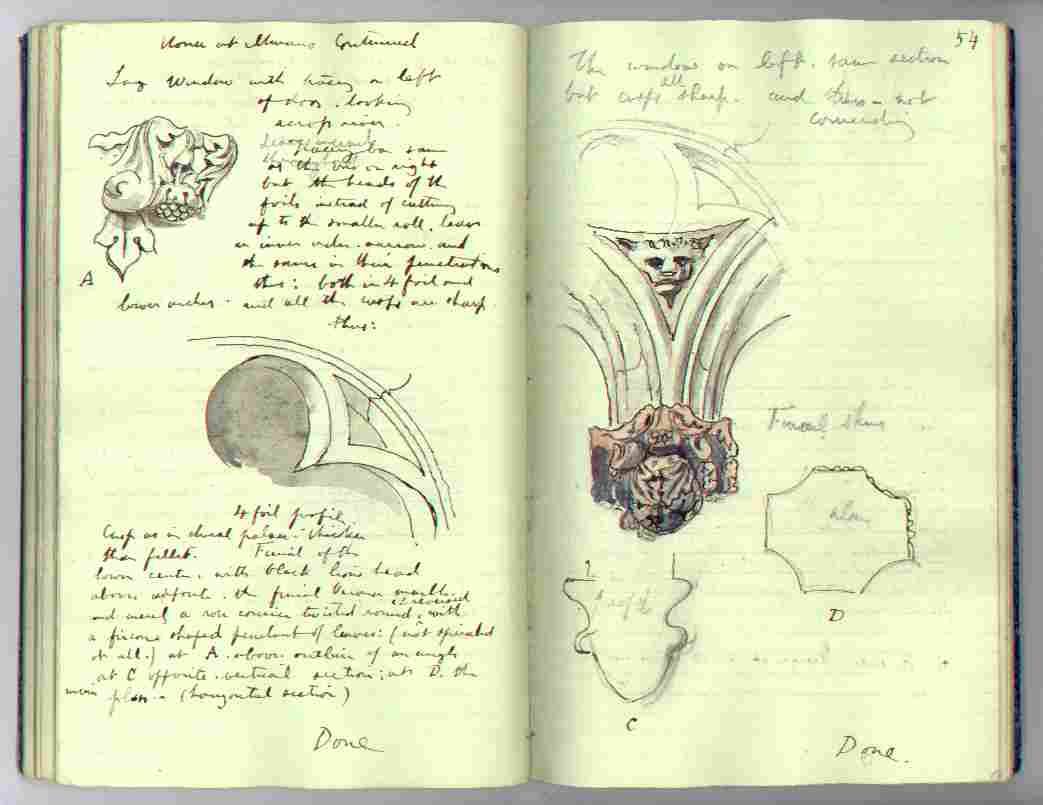 House at Murano Continued
Lay Window with tracery on left
of door. looking
across river.
tracery bar same
as the one on right
but the heads of the
foils instead of cutting
up to the smaller roll, leave
an inner order. narrow. and
the same in their penetrations
thus: both in 4 foil and
lower arches. and all the cusps are sharp.
thus:
A
4 foil profile
Cusp as in ducal palace. thicker
than fillet. Finial of the
lower centre. with black lions head
above. the finial Verona marble
and merely a rose cornice twisted round, & reversed with
a fircone shaped pendant of leaves: (not spiralled
at all.) at A. above. outline of an angle
at C opposite. vertical section; at D. the
main plan. (horizontal section)
Done
54
The window on left. same section
but cusps all sharp. and
Finial
plan
D
C
Done.